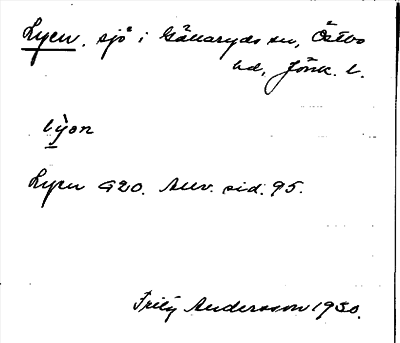 Lyen, sjö i Gällaryds sn, Östbo
hd, Jönk. l.
lỳen
Lyen G20. Anv. sid. 95.
Fritz Andersson 1930.